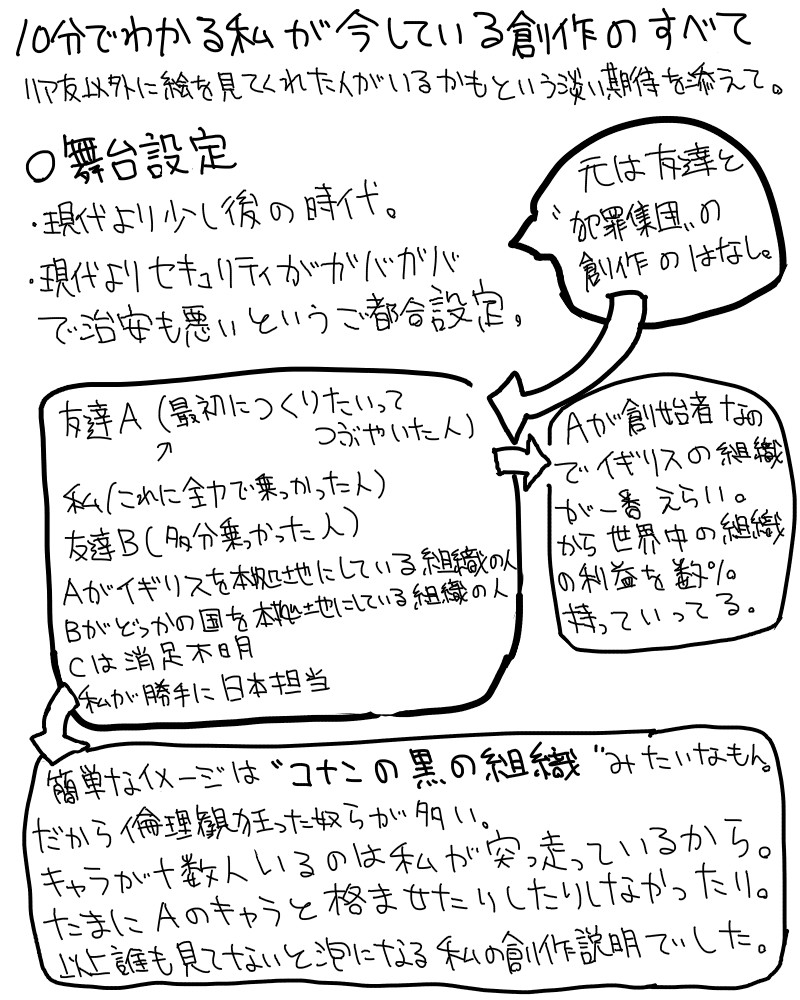 10分でわかる私が今している創作のすべて
リア友以外に絵を見てくれた人がいるかもという淡い期待を添えて。
○舞台設定
・現代より少し後の時代。
・現代よりセキュリティがガバガバ
で治安も悪いというご都合設定。
元は友達と
"犯罪集団"の
創作のはなし。
友達A(最初につくりたいって
つぶやいた人)
↗
私(これに全力で乗っかった人)
友達B(多分乗っかった人)
Aがイギリスを本拠地にしている組織の人
Bがどっかの国を本拠地にしている組織の人
Cは消息不明
私が勝手に日本担当
Aが創始者なの
でイギリスの組織
が一番えらい。
から世界中の組織
の利益を数%
持っていってる。
簡単なイメージは"コナンの黒の組織"みたいなもん。
だから倫理観狂った奴らが多い。
キャラが十数人いるのは私が突っ走っているから。
たまにAのキャラと格ませたりしたりしなかったり。
以上誰も見てないと泡になる私の創作説明でした。